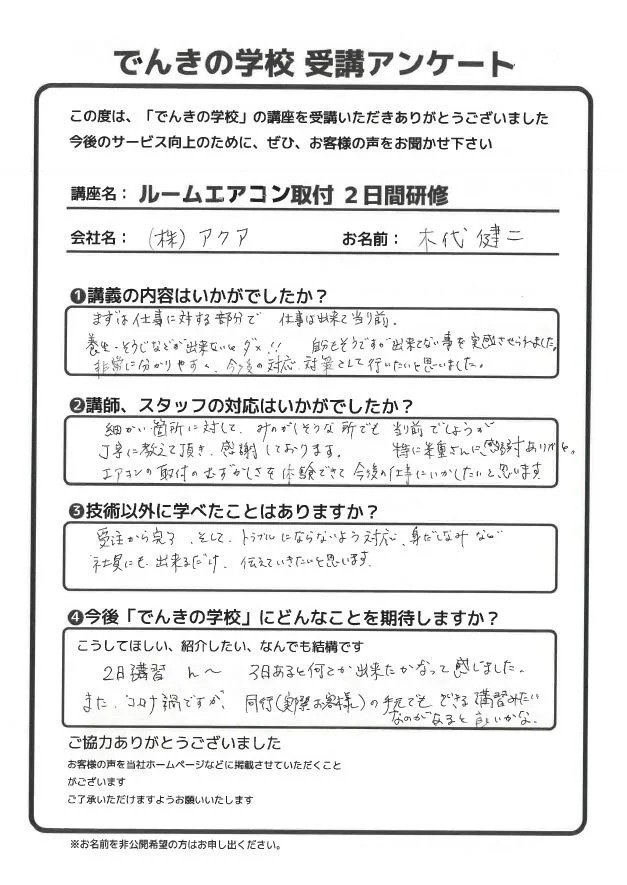 でんきの学校 受講アンケート
この度は、「でんきの学校」の講座を受講いただきありがとうございました
今後のサービス向上のために、ぜひ、お客様の声をお聞かせ下さい
講座名： ルームエアコン取付 2日間研修
会社名： (株) アクア お名前： 木代 健二
❶講義の内容はいかがでしたか？
まずは仕事に対する部分で 仕事は出来て当り前.
養生・そうじなどが出来ないとダメ!! 自分もそうですが出来てない事を実感させられました。
非常に分かりやすく、今後の対応、対策として行いたいと思いました。
❷講師、スタッフの対応はいかがでしたか？
細かい箇所に対して、みのがしそうな所でも 当り前でしょうが
丁寧に教えて頂き、感謝しております。 特に米重さんに感謝ありがと。
エアコンの取付のむずかしさを体験できて今後の仕事にいかしたいと思います
❸技術以外に学べたことはありますか？
受注から完了、そして、トラブルにならないよう対応、身だしなみなど
社員にも、出来るだけ、伝えていきたいと思います.
❹今後「でんきの学校」にどんなことを期待しますか？
こうしてほしい、紹介したい、なんでも結構です
2日講習 ん〜 3日あると何とか出来たかなって感じました。
また、コロナ禍ですが、同行(実際お客様)の手元でもできる講習みたい
なのがあると良いかな.
ご協力ありがとうございました
お客様の声を当社ホームページなどに掲載させていただくこと
がございます
ご了承いただけますようお願いいたします
※お名前を非公開希望の方はお申し出ください。